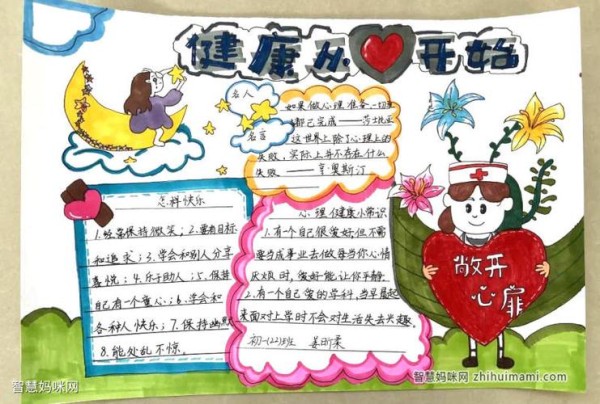 健康从心开始
名人
名言
如果做心理准备,一切准备
都已完成——莎士比亚
这世界上除了心理上的
失败,实际上并不存在什么
失败——亨·奥斯汀
怎样快乐
1.经常保持微笑;2.要有目标
和追求;3.学会和别人分享
喜悦;4.乐于助人;5.保持
自己有一个童心;6.学会和
各种人快乐;7.保持幽默
8.能处乱不惊。
心理健康小常识
1.有个自己很爱好但不需
要当成事业去做每当你心情
厌烦时,爱好能让你平静
2.有一个自己爱的学科,当早晨起
来面对上学时不会对生活失去兴趣。
初一(22)班
敞开
心扉
智慧妈咪网
智慧妈咪网 zhihuimami.com